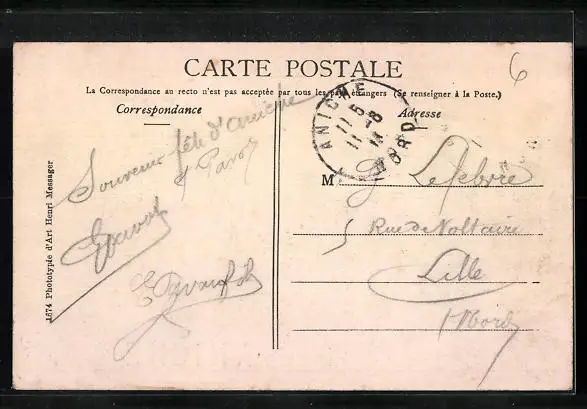 6
CARTE POSTALE
La Correspondance au recto n'est pas acceptée par tous les pays étrangers (Se renseigner à la Poste.)
Correspondance
Adresse
ANICHE
NORD
Souvenir fête d'Aniche
M Lefebvre
5 Rue de Voltaire
Lille
Nord
1674 Phototypie d'Art Henri Messager